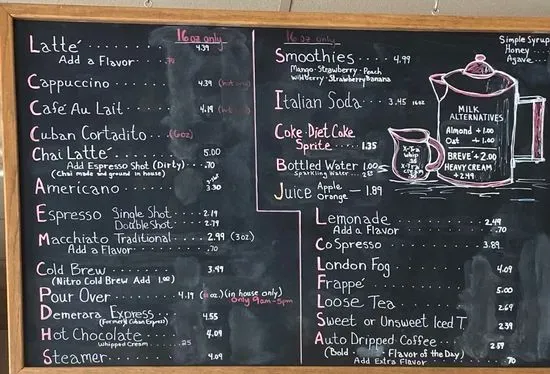 16oz only
Latté 4.39
Add a Flavor .70
Cappuccino 4.39 (hot only)
Café Au Lait 4.19
Cuban Cortadito (6oz)
Chai Latté 5.00
Add Espresso Shot (Dirty) .70
(Chai made and ground in house)
Americano 3.30
Espresso Single Shot 2.19
Double Shot 2.79
Macchiato Traditional 2.99 (3oz)
Add a Flavor .70
Cold Brew 3.99
(Nitro Cold Brew Add 1.00)
Pour Over 4.19 (oz.) (in house only)
only 9am-5pm
Demerara Express 4.55
(Formerly Cuban Express)
Hot Chocolate 4.09
Whipped Cream .25
Steamer 4.09
16oz only
Smoothies 4.99
Mango·Strawberry·Peach
Wildberry·Strawberry Banana
Italian Soda 3.45 16oz
Coke·Diet Coke
Sprite 1.35
Bottled Water 1.00
Sparkling Water
Juice Apple
Orange 1.89
Simple Syrup
Honey
Agave
MILK
ALTERNATIVES
Almond +1.00
Oat +1.00
BREVE +2.00
HEAVY CREAM
+2.99
X-Tra
Whip
X-Tra
Cream
Lemonade 2.49
Add a Flavor .70
CoSpresso 3.89
London Fog 4.09
Frappé 5.00
Loose Tea 2.69
Sweet or Unsweet Iced T 2.39
Auto Dripped Coffee 2.59
(Bold - Flavor of the Day)
Add Extra Flavor .70